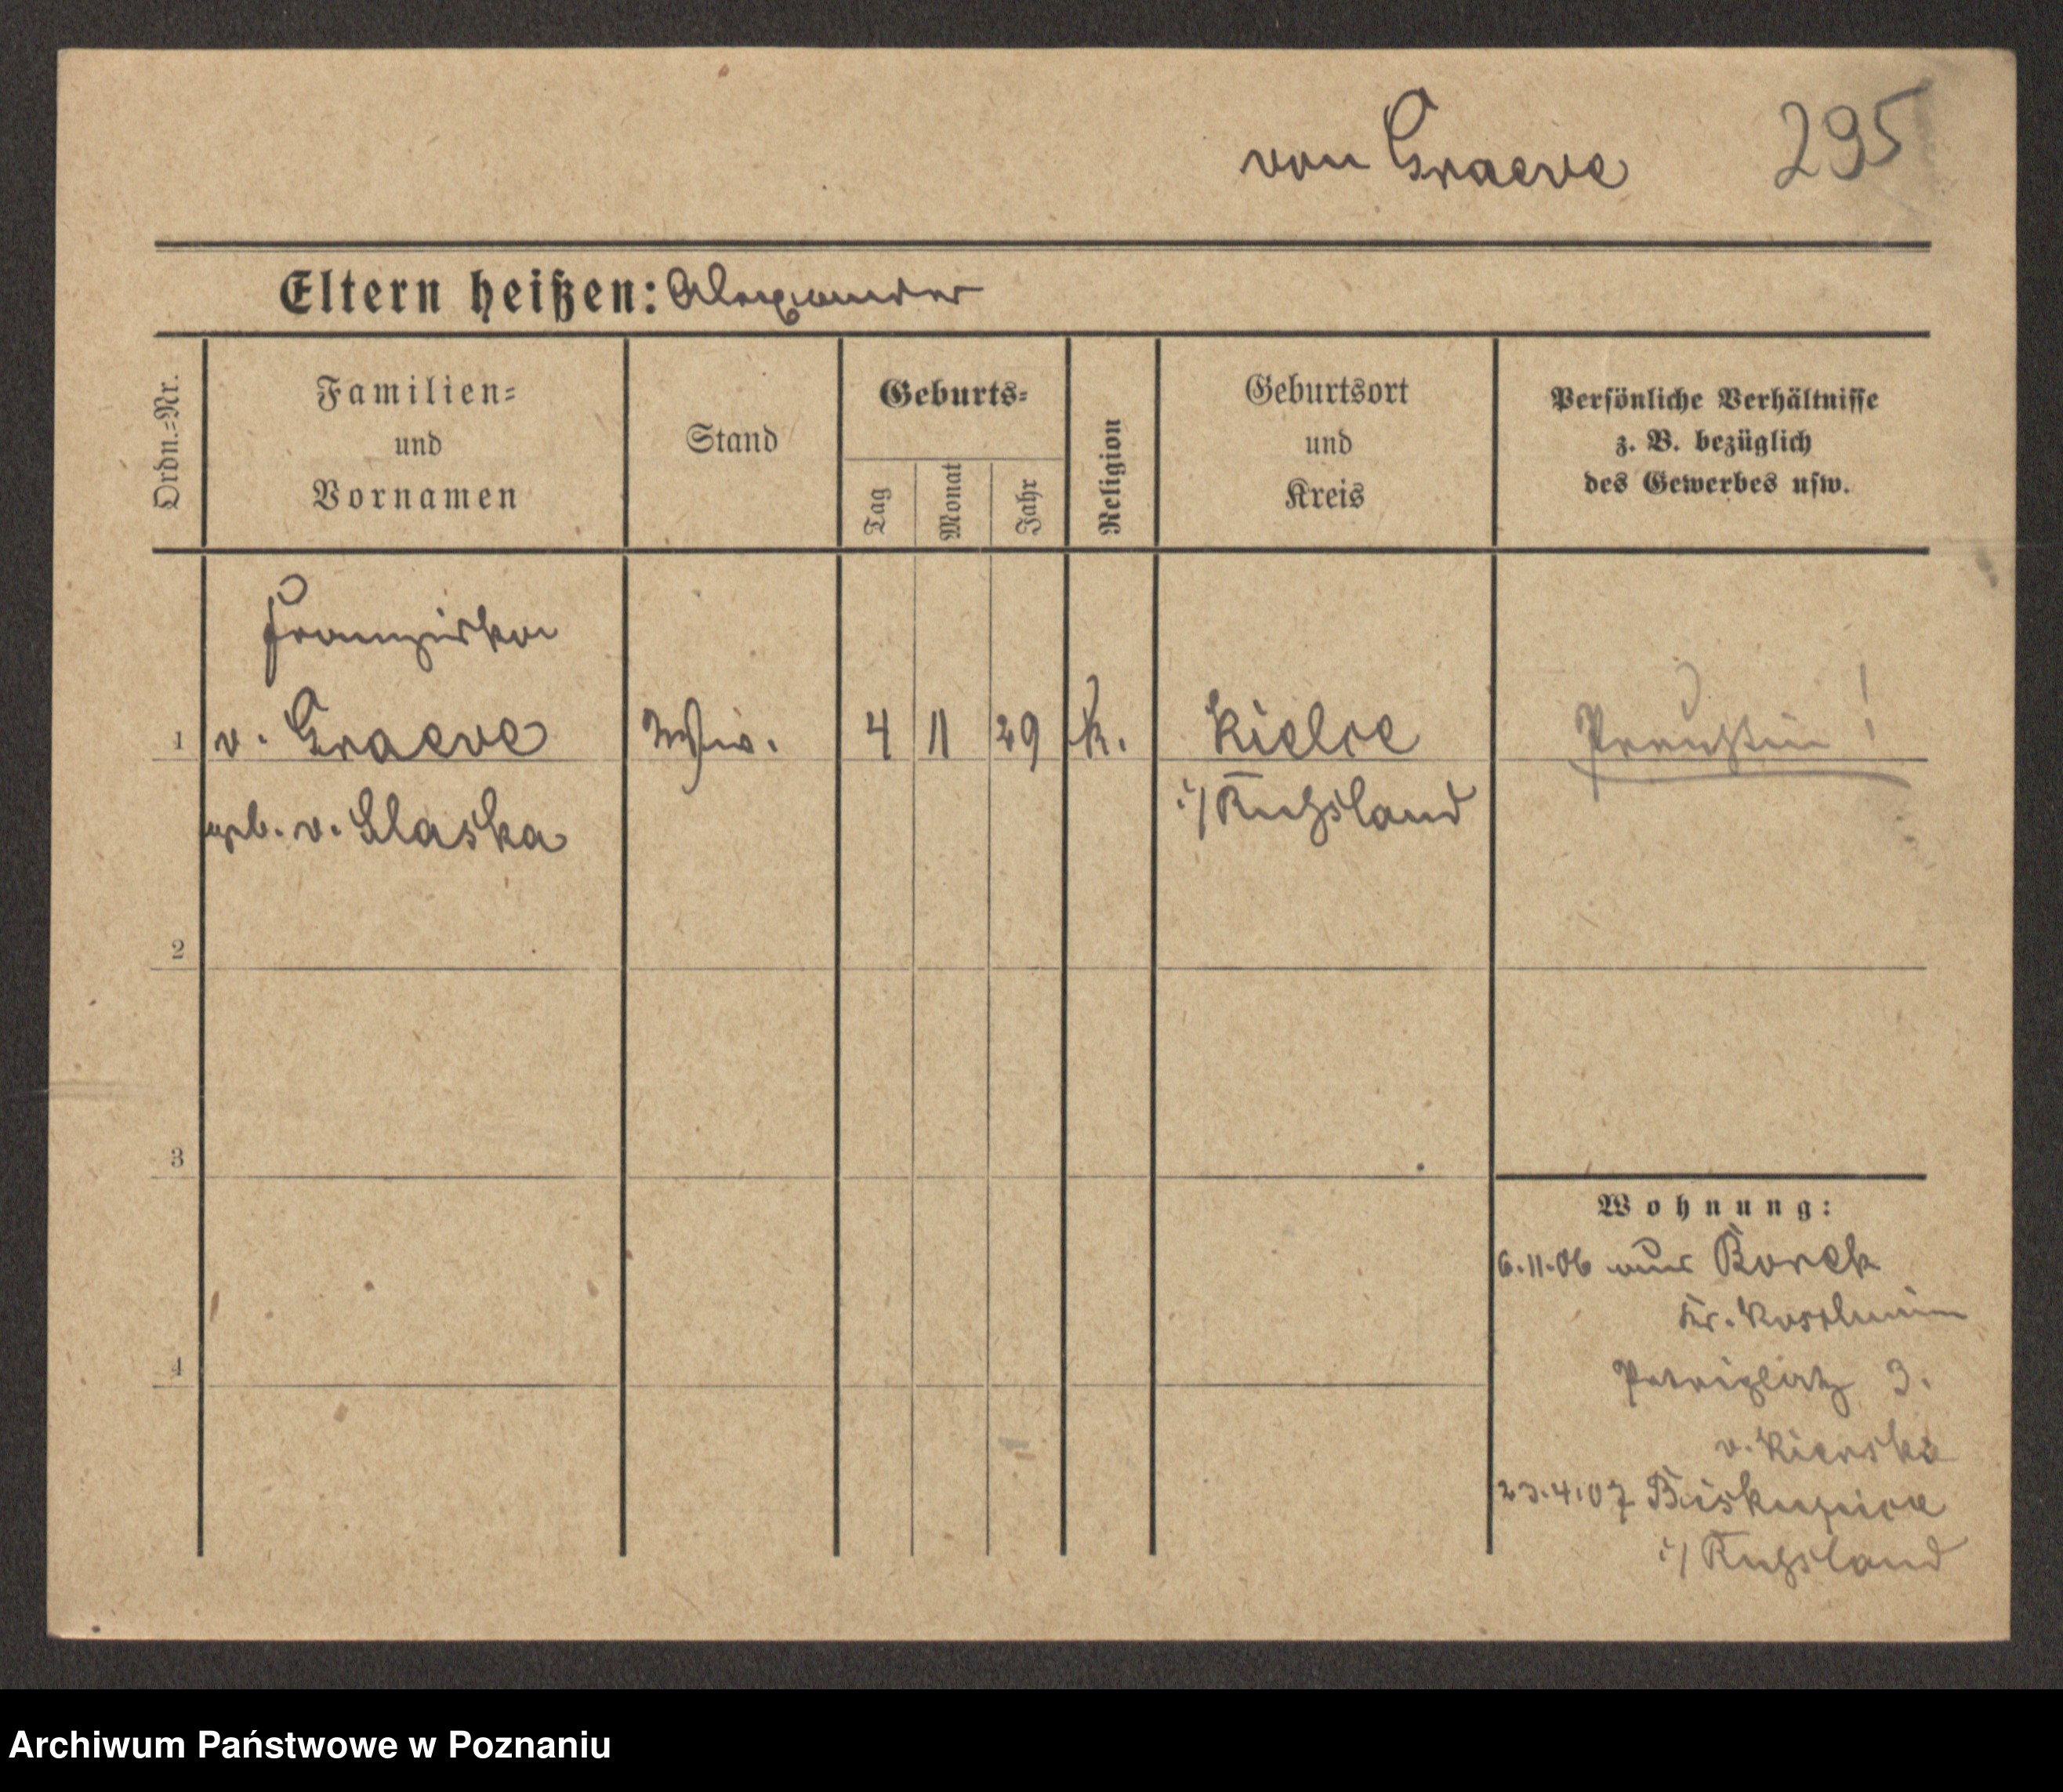 von Graeve 295
Eltern heißen: Alexander
Ordn.=Nr.
Familien=
und
Vornamen
Stand
Geburts=
Tag
Monat
Jahr
Religion
Geburtsort
und
Kreis
Persönliche Verhältnisse
z. B. bezüglich
des Gewerbes usw.
Franziska
1 v. Graeve 4 11 29 k. Kielce Preußin!
geb. v. Slaska i/Rußland
2
3
Wohnung:
6.11.06 aus Borek
Kr. Koschmin
4 Petriplatz 3.
v. Kierski
23.4.07 Biskupice
i/Rußland
Archiwum Państwowe w Poznaniu